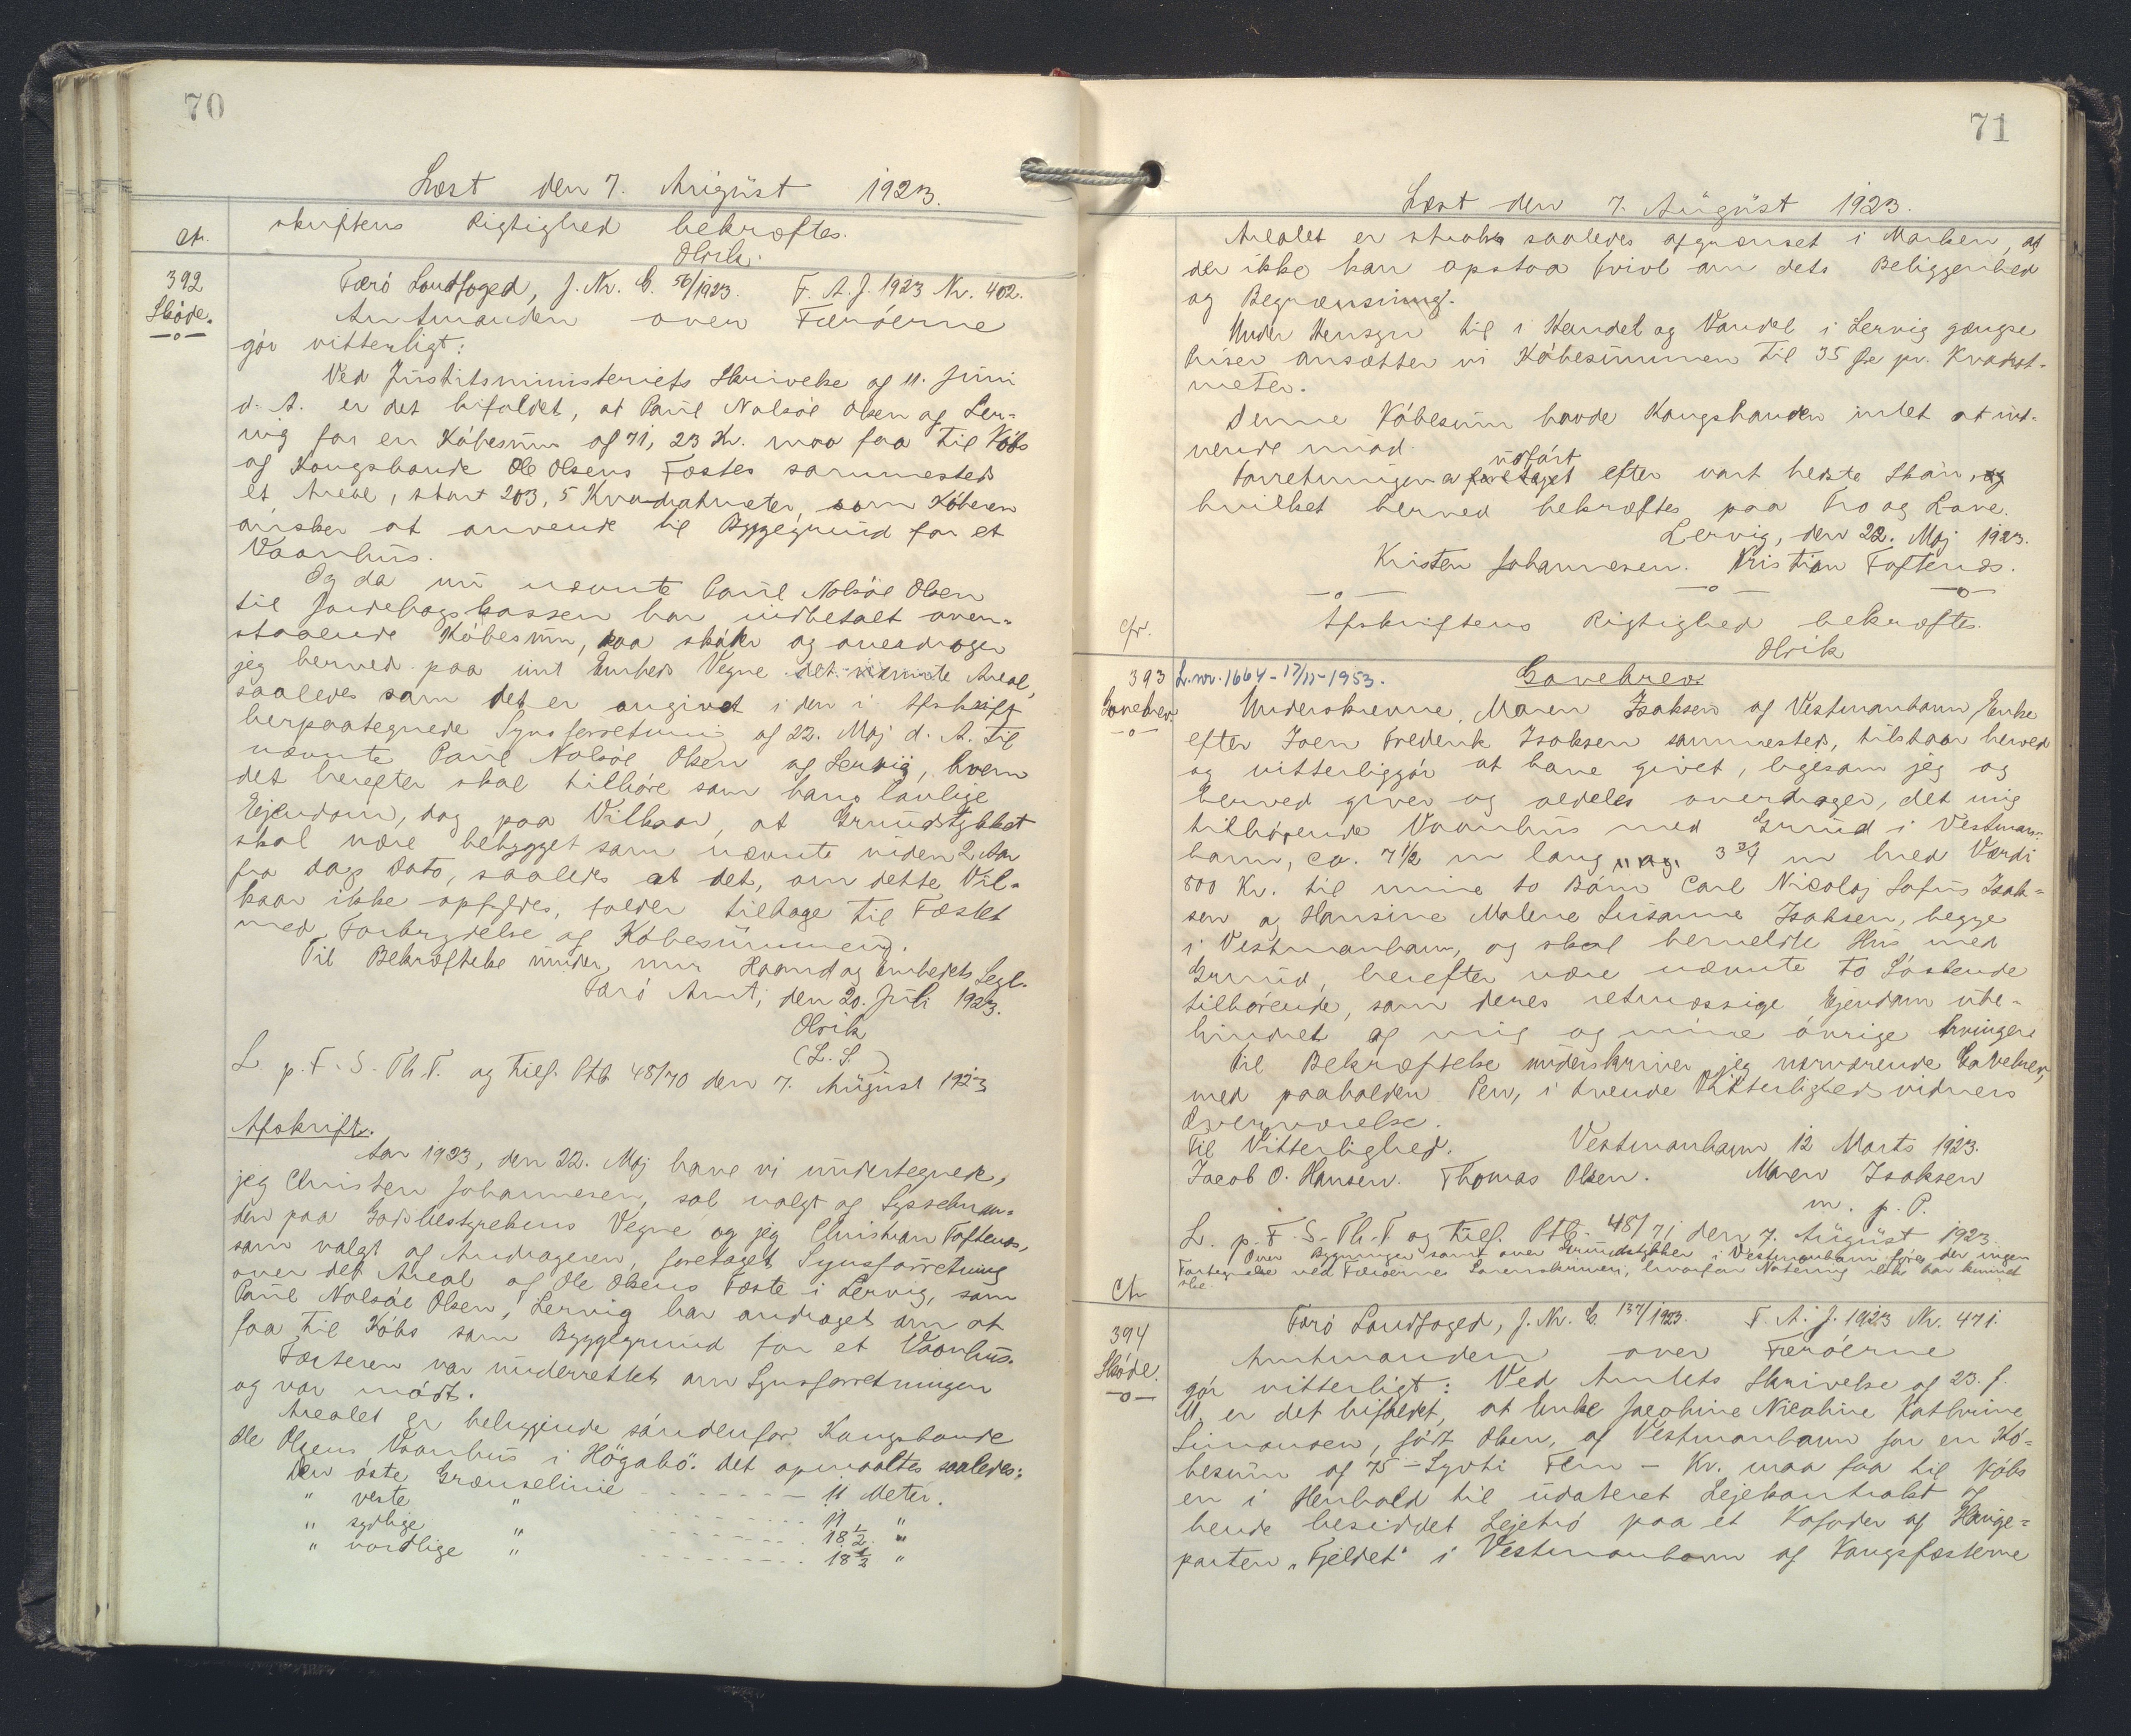 70
Læst den 7. August 1923.
skriftens Rigtighed bekræftes.
Olrik.
392
Skøde.
Færø Landfoged, J. Nr. C. 56/1923. F. A. J. 1923 Nr. 402.
Amtmanden over Færøerne
gør vitterligt:
Ved Justitsministeriets Skrivelse af 11. Juni
d. A. er det bifaldet, at Paul Nolsøe Olsen af Ler-
vig for en Købesum af 71, 23 Kr. maa faa til Købs
af Kongsbonde Ole Olsens Fæste sammesteds
et Areal, stort 203, 5 Kvadratmeter, som Køberen
ønsker at anvende til Byggegrund for et
Vaanhus.
Og da nu nævnte Paul Nolsøe Olsen
til Jordebogskassen har indbetalt oven-
staaende Købesum, saa skøder og overdrager
jeg herved paa mit Embeds Vegne det nævnte Areal,
saaledes som det er angivet i den i Afskrift
herpaategnede Synsforretning af 22. Maj d. A. til
nævnte Paul Nolsøe Olsen af Lervig, hvem
det herefter skal tilhøre som hans lovlige
Ejendom, dog paa Vilkaar, at Grundstykket
skal være bebygget som nævnte inden 2 Aar
fra Dags Dato, saaledes at det, om dette Vil-
kaar ikke opfyldes, falder tilbage til Fæstet
med Forbrydelse af Købesummen.
Til Bekræftelse under min Haand og Embedets Segl.
Færø Amt, den 20. Juli 1923.
Olrik
(L. S.)
L. p. F. S. Th. T. og tilf. Ptb. 48/70 den 7. August 1923
Afskrift.
Aar 1923, den 22. Maj have vi undertegnede,
jeg Christen Johannesen, sol valgt af Sysselman-
den paa Godsbestyrelsens Vegne og jeg Christian Toftenæs,
som valgt af Andrageren, foretaget Synsforretning
over det Areal af Ole Olsens Fæste i Lervig, som
Paul Nolsøe Olsen, Lervig har andraget om at
faa til Købs som Byggegrund for et Vaanhus.
Fæsteren var underrettet om Synsforretningen
og var mødt.
Arealet er beliggende søndenfor Kongsbonde
Ole Olsens Vaanhus i Högabø. Det opmaaltes saaledes:
Den øste Grænselinie - - - - - - - 11 Meter.
" veste " - - - - - - - 11 "
" sydlige " - - - - - - - 18 1/2 "
" nordlige " - - - - - - - 18 1/2 "
71
Læst den 7. August 1923.
Arealet er straks saaledes afgrænset i Marken, at
der ikke kan opstaa Tvivl om dets Beliggenhed
og Begrænsning.
Under Hensyn til i Handel og Vandel i Lervig gængse
Priser ansætter vi Købesummen til 35 Øre pr. Kvadrat-
meter.
Denne Købesum havde Kongsbonden intet at ind-
vende mod.
udført
Forretningen er foretaget efter vort bedste Skøn, og
hvilket herved bekræftes paa Tro og Love.
Lervig, den 22. Maj 1923.
Kristen Johannesen. Kristian Toftenæs.
Afskriftens Rigtighed bekræftes.
Olrik
393
Gavebrev
L. nr. 1664 - 17/11 - 1953.
Gavebrev.
Underskrevne, Maren Isaksen af Vestmanhavn, Enke
efter Joen Frederik Isaksen sammesteds, tilstaar herved
og vitterliggør at have givet, ligesom jeg og
herved giver og aldeles overdrager, det mig
tilhørende Vaanhus med Grund i Vestman-
havn, ca. 7 1/2 m lang og 3 3/4 m bred Værdi
800 Kr. til mine to Børn Carl Nicolaj Sofus Isak-
sen og Hansine Malene Susanne Isaksen, begge
i Vestmanhavn, og skal bemeldte Hus med
Grund, herefter være nævnte to Søskende
tilhørende, som deres retmæssige Ejendom ube-
hindret af mig og mine øvrige Arvinger.
Til Bekræftelse underskriver jeg nærværende Gavebrev,
med paaholden Pen, i tvende Vitterlighedsvidners
Overværelse.
Til Vitterlighed. Vestmanhavn 12 Marts 1923.
Jacob O. Hansen. Thomas Olsen. Maren Isaksen
m. p. P.
L. p. F. S. Th. T og tilf. Ptb. 48/71 den 7. August 1923.
Over Bygninger samt over Grundstykker i Vestmanhavn føres der ingen
Fortegnelse ved Færøernes Sorenskriveri, hvorfor Notering ikke har kunnet
ske.
394
Skøde.
Færø Landfoged, J. Nr. C. 137/1923. F. A. J. 1923 Nr. 471.
Amtmanden over Færøerne
gør vitterligt: Ved Amtets Skrivelse af 23. f.
M. er det bifaldet, at Enke Jacobine Nicoline Kathrine
Simonsen, født Olsen, af Vestmanhavn for en Kø-
besum af 75 - Syvti Fem - Kr. maa faa til Købs
en i Henhold til udateret Lejekontrakt af
hende besiddet Lejetrø paa et Kofoder af Hauge-
parten "Fjeldet" i Vestmanhavn af Kongsfæsterne